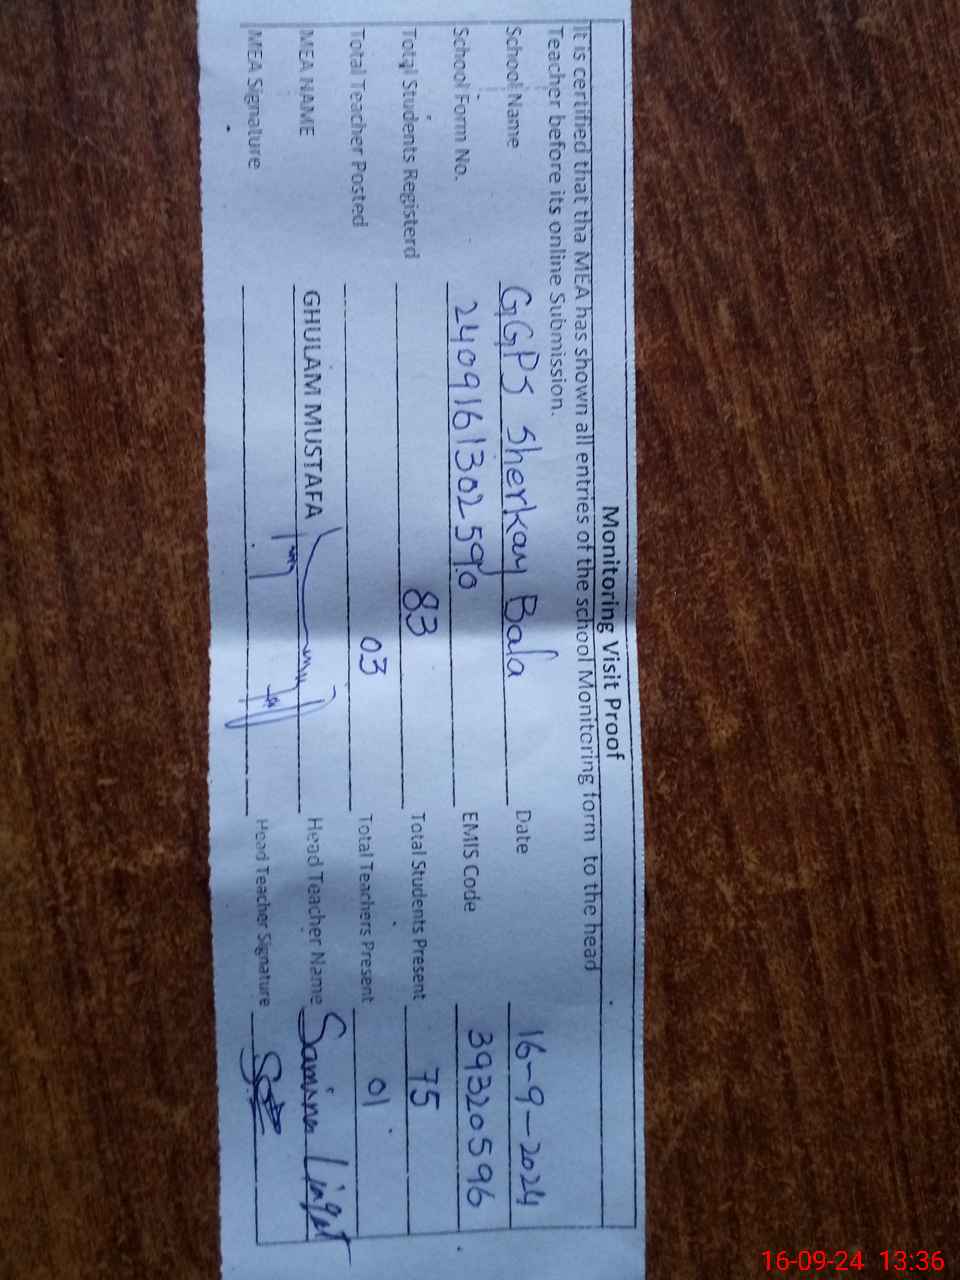 Monitoring Visit Proof
It is certified that tha MEA has shown all entries of the school Monitoring form to the head
Teacher before its online Submission.
School Name GGPS Sherkay Bala Date 16-9-2024
School Form No. 2409161302590 EMIS Code 39320596
Total Students Registerd 83 Total Students Present 75
Total Teacher Posted 03 Total Teachers Present 01
MEA NAME GHULAM MUSTAFA Head Teacher Name Samina
MEA Signature Head Teacher Signature
16-09-24 13:36